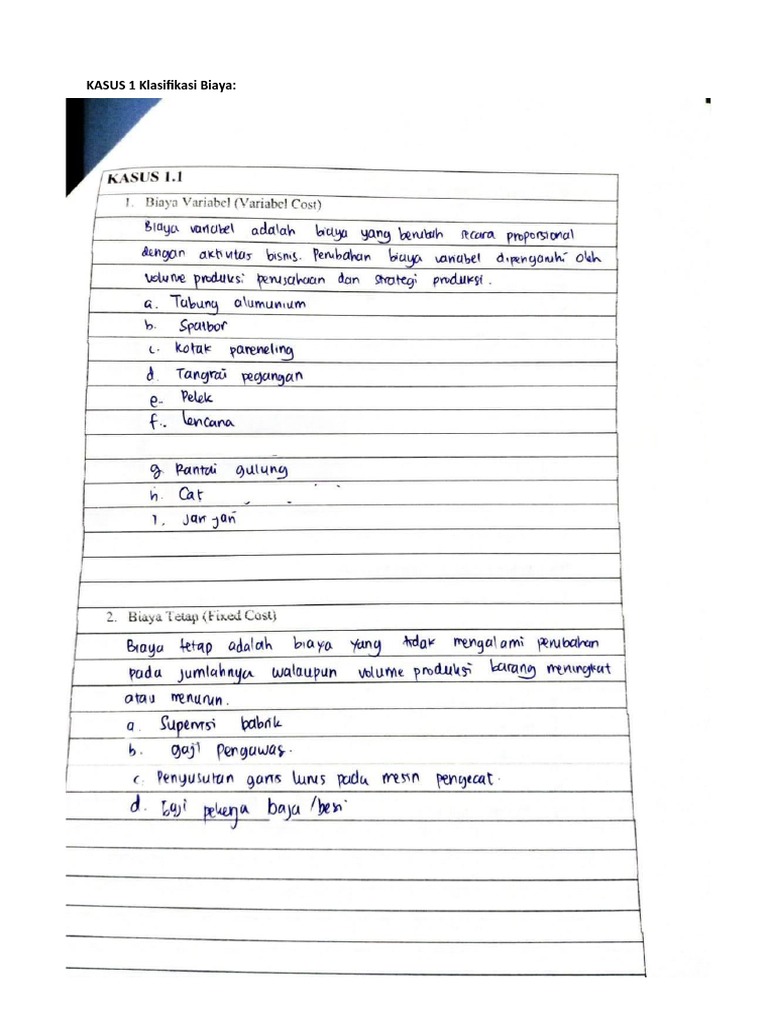 KASUS 1 Klasifikasi Biaya:
KASUS 1.1
1. Biaya Variabel (Variabel Cost)
Biaya variabel adalah biaya yang berubah secara proporsional
dengan aktivitas bisnis. Perubahan biaya variabel dipengaruhi oleh
volume produksi perusahaan dan strategi produksi.
a. Tabung alumunium
b. Spatbor
c. Kotak pareneling
d. Tangrai pegangan
e. Pelek
f. Lencana
g. Rantai gulung
h. Cat
i. Jari-jari
2. Biaya Tetap (Fixed Cost)
Biaya tetap adalah biaya yang tidak mengalami perubahan
pada jumlahnya walaupun volume produksi barang meningkat
atau menurun.
a. Supervisi babrik
b. gaji Pengawas.
c. Penyusutan garis lurus pada mesin pengecat.
d. Gaji pekerja baja/besi